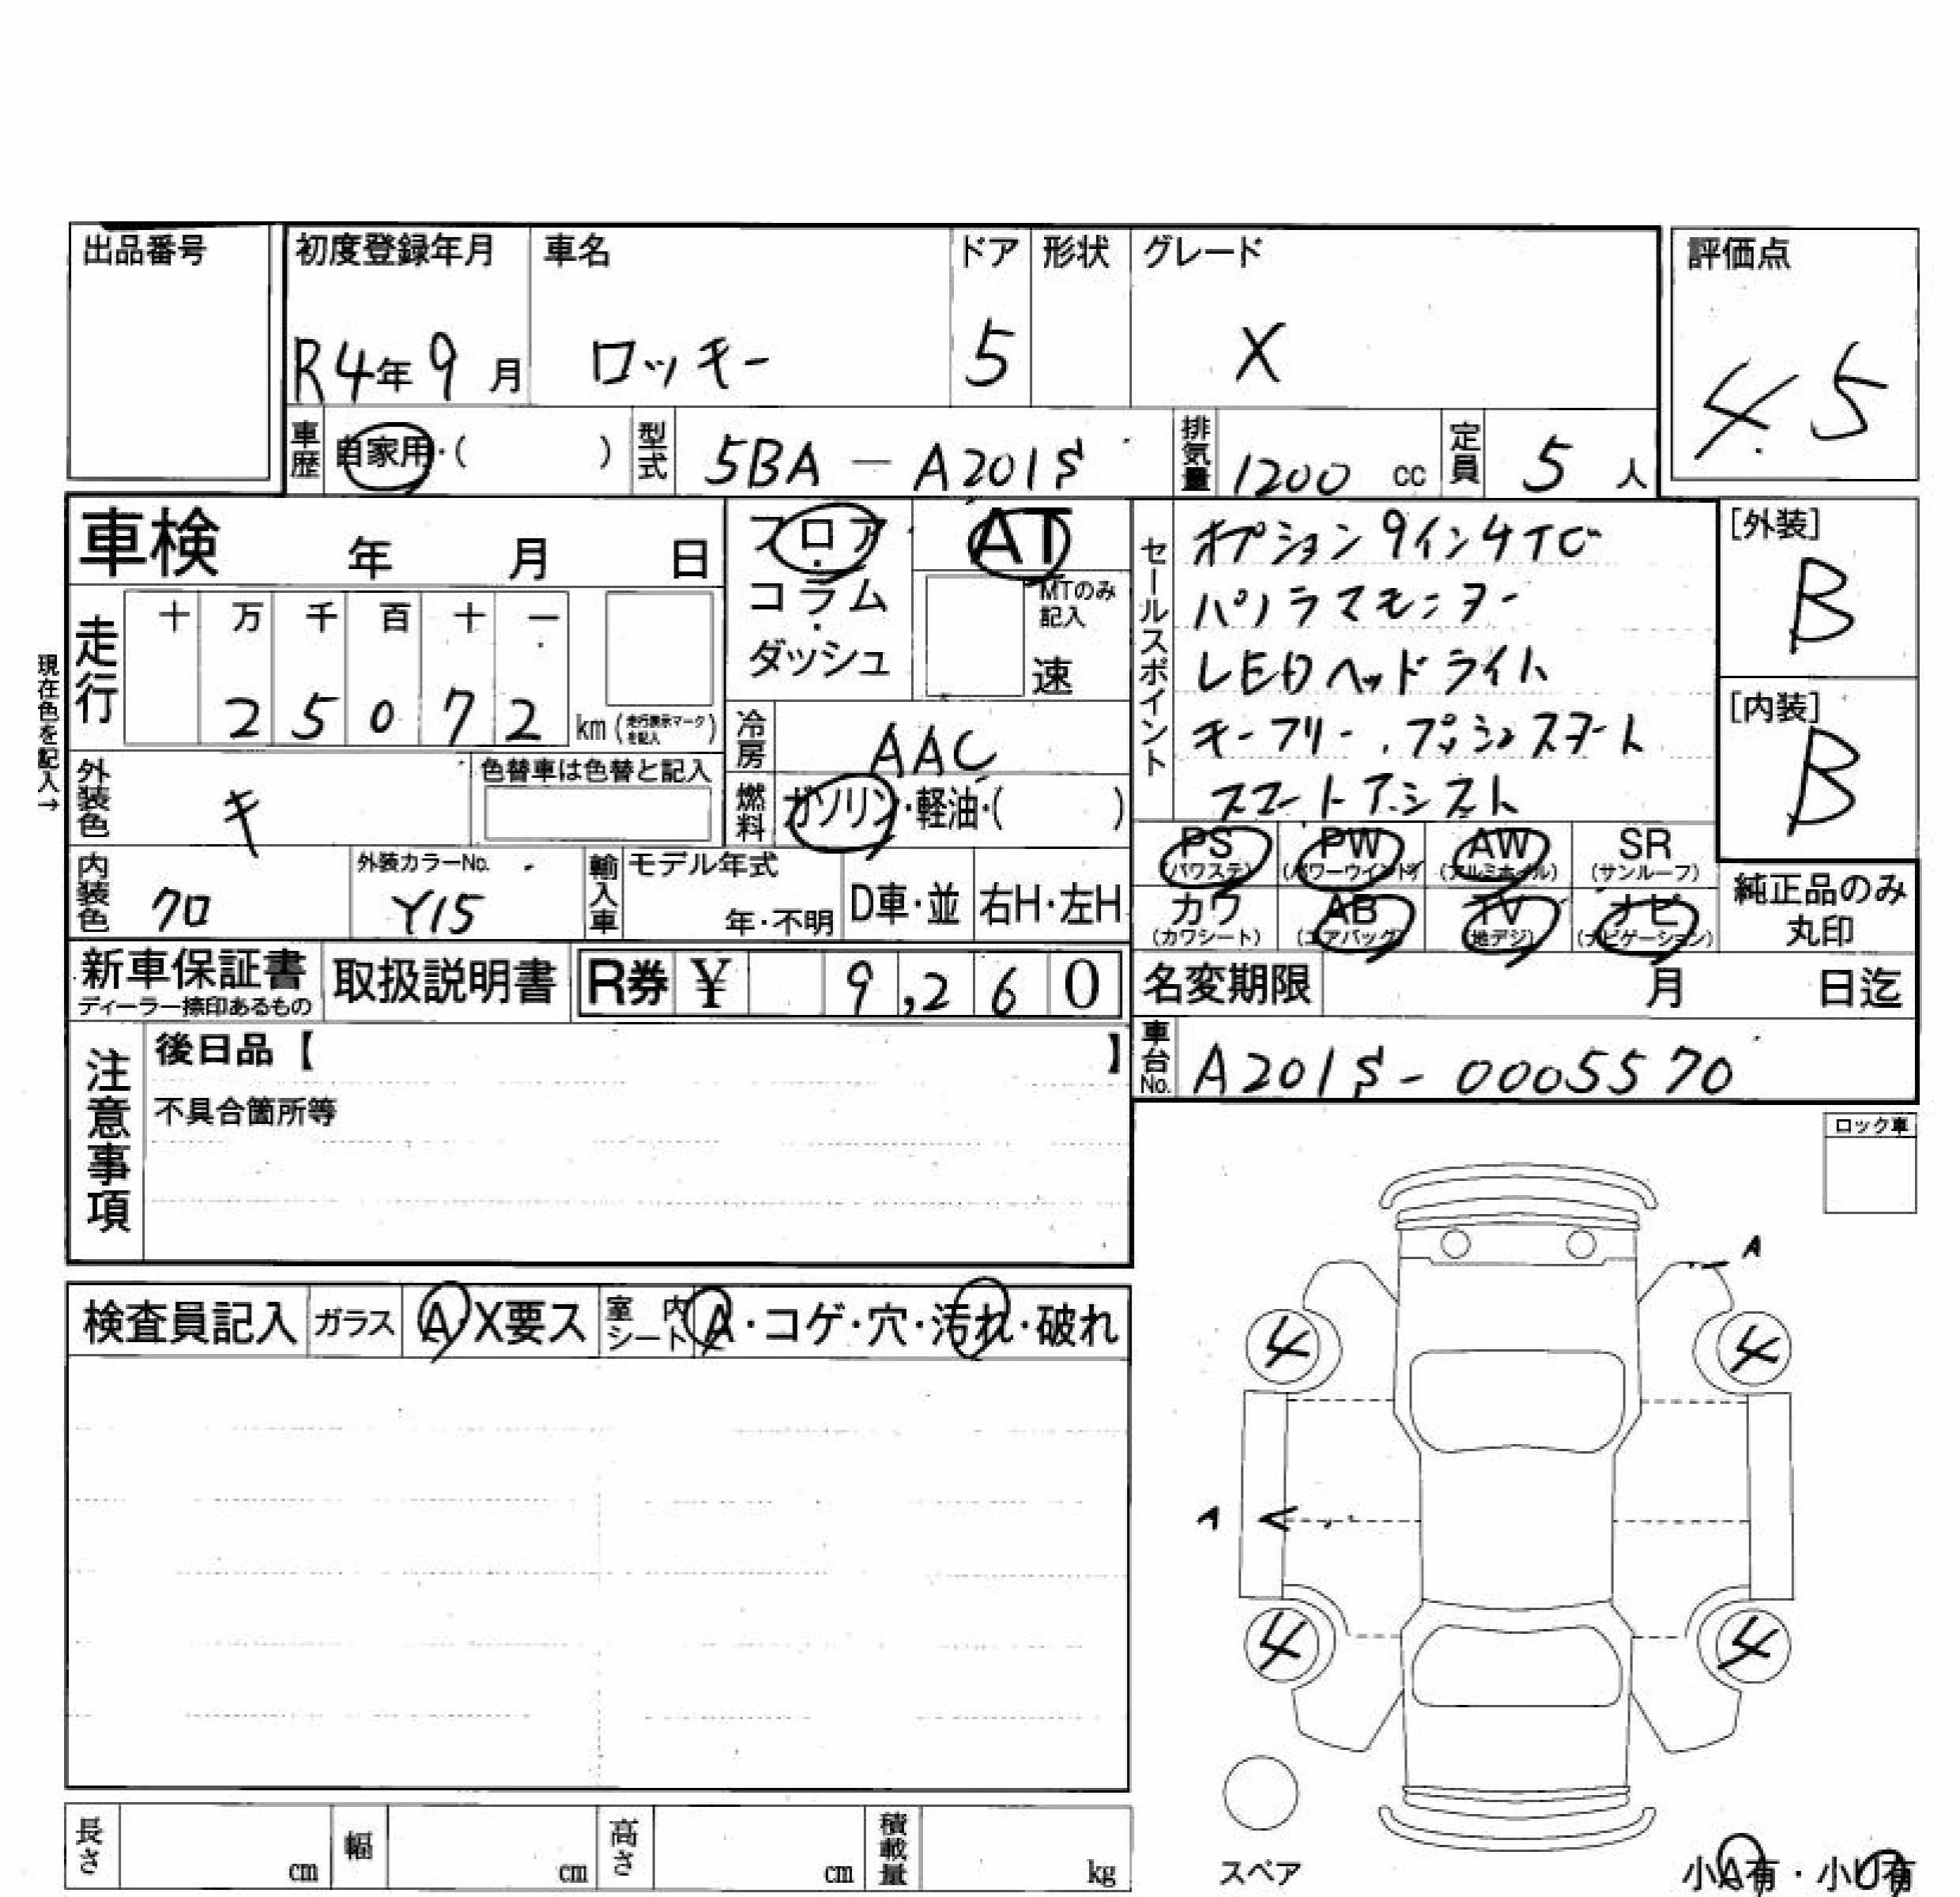 出品番号
初度登録年月 車名 ドア 形状 グレード 評価点
R4年9月 ロッキー 5 X 4.5
車歴 自家用・( ) 型式 5BA-A201S 排気量 1200 cc 定員 5 人
車検 年 月 日
フロア・コラム・ダッシュ
AT
MTのみ記入
速
セールスポイント
オプション9インチTV
パノラマモニター
LEDヘッドライト
キーフリー、プッシュスタート
スマートアシスト
[外装]
B
[内装]
B
現在色を記入→
走行 十 万 千 百 十 一
25072 km (走行表示マークを記入)
冷房 AAC
外装色 キ 色替車は色替と記入
燃料 ガソリン・軽油・( )
内装色 クロ 外装カラーNo. Y15
輸入車 モデル年式 年・不明 D車・並 右H・左H
PS (パワステ) PW (パワーウインド) AW (アルミホイル) SR (サンルーフ)
カワ (カワシート) AB (エアバッグ) TV (地デジ) ナビ (ナビゲーション)
純正品のみ丸印
新車保証書 ディーラー捺印あるもの 取扱説明書 R券 ¥ 9,260
名変期限 月 日迄
車台No. A201S-0005570
注意事項
後日品【 】
不具合箇所等
ロック車
検査員記入 ガラス A X要ス 室内シート A・コゲ・穴・汚れ・破れ
A
4 4
A
4 4
スペア
小A有・小U有
長さ cm 幅 cm 高さ cm 積載量 kg